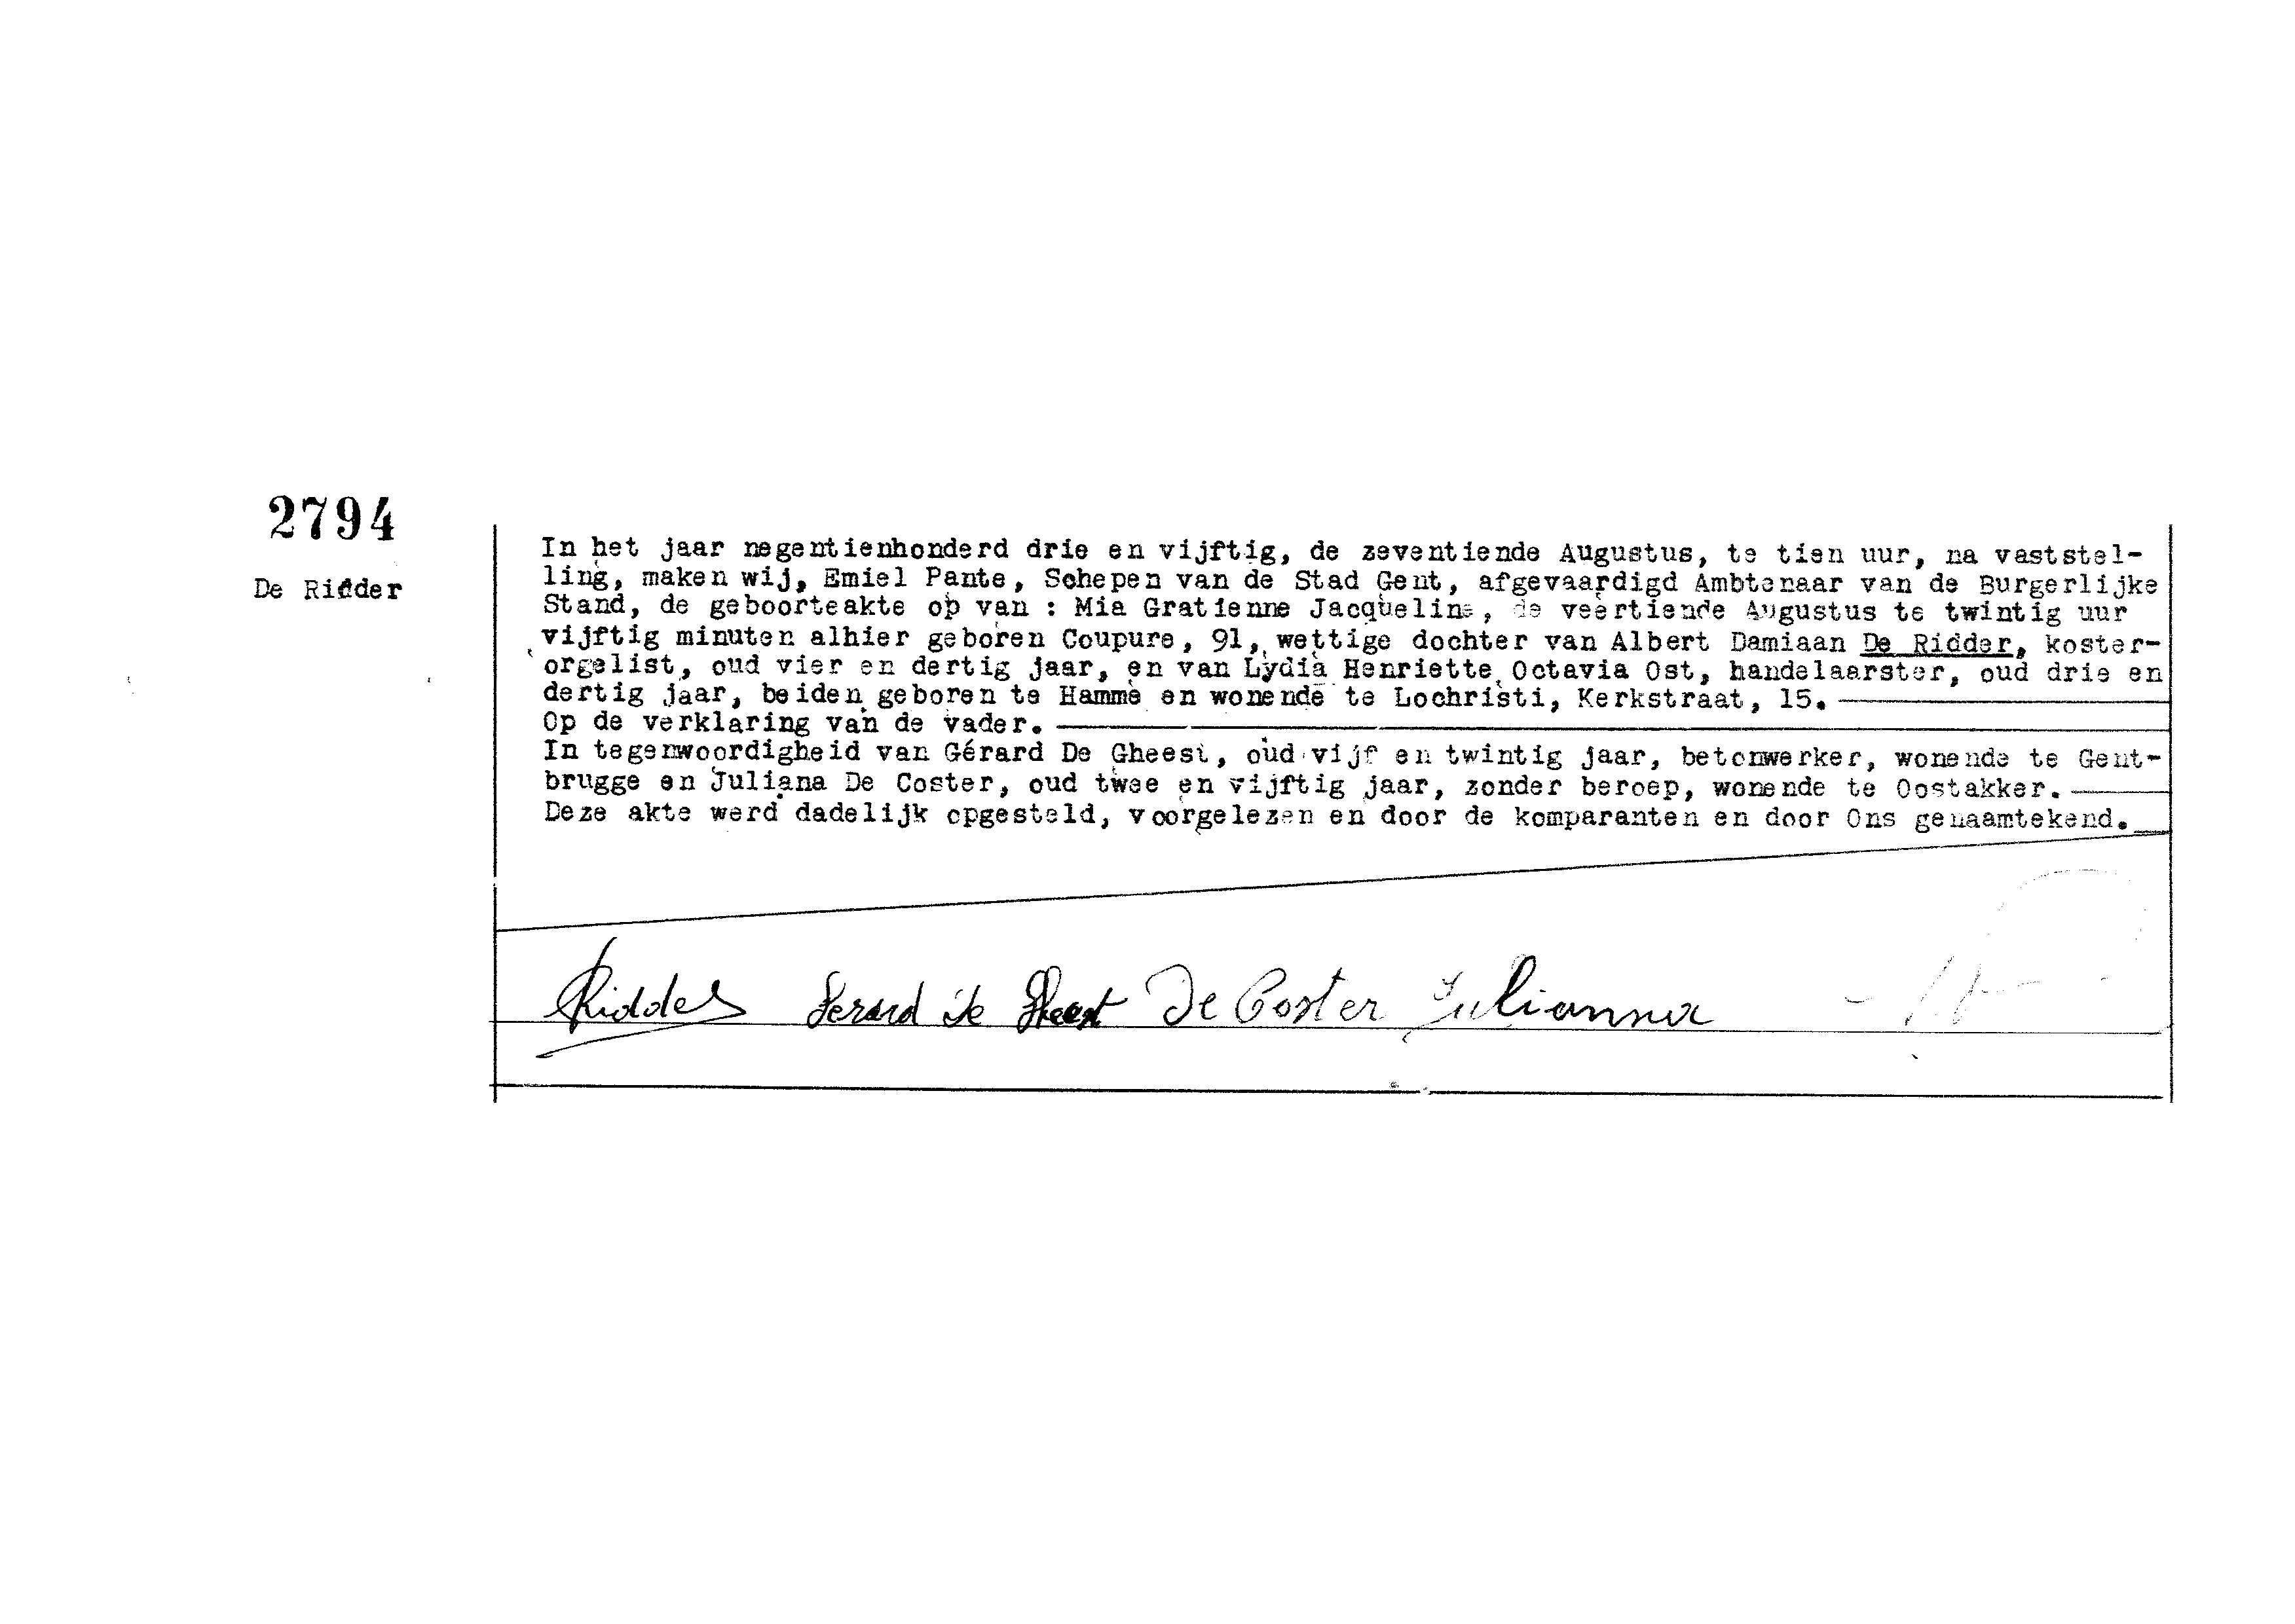 2794
De Ridder
In het jaar negentienhonderd drie en vijftig, de zeventiende Augustus, te tien uur, na vaststel-
ling, maken wij, Emiel Pante, Schepen van de Stad Gent, afgevaardigd Ambtenaar van de Burgerlijke
Stand, de geboorteakte op van : Mia Gratienne Jacqueline, de veertiende Augustus te twintig uur
vijftig minuten alhier geboren Coupure, 91, wettige dochter van Albert Damiaan De Ridder, koster-
orgelist, oud vier en dertig jaar, en van Lydia Henriette Octavia Ost, handelaarster, oud drie en
dertig jaar, beiden geboren te Hamme en wonende te Lochristi, Kerkstraat, 15.
Op de verklaring van de vader.
In tegenwoordigheid van Gérard De Gheest, oud vijf en twintig jaar, betonwerker, wonende te Gent-
brugge en Juliana De Coster, oud twee en vijftig jaar, zonder beroep, wonende te Oostakker.
Deze akte werd dadelijk opgesteld, voorgelezen en door de komparanten en door Ons genaamtekend.
Ridder Gerard De Gheest De Coster Julianna